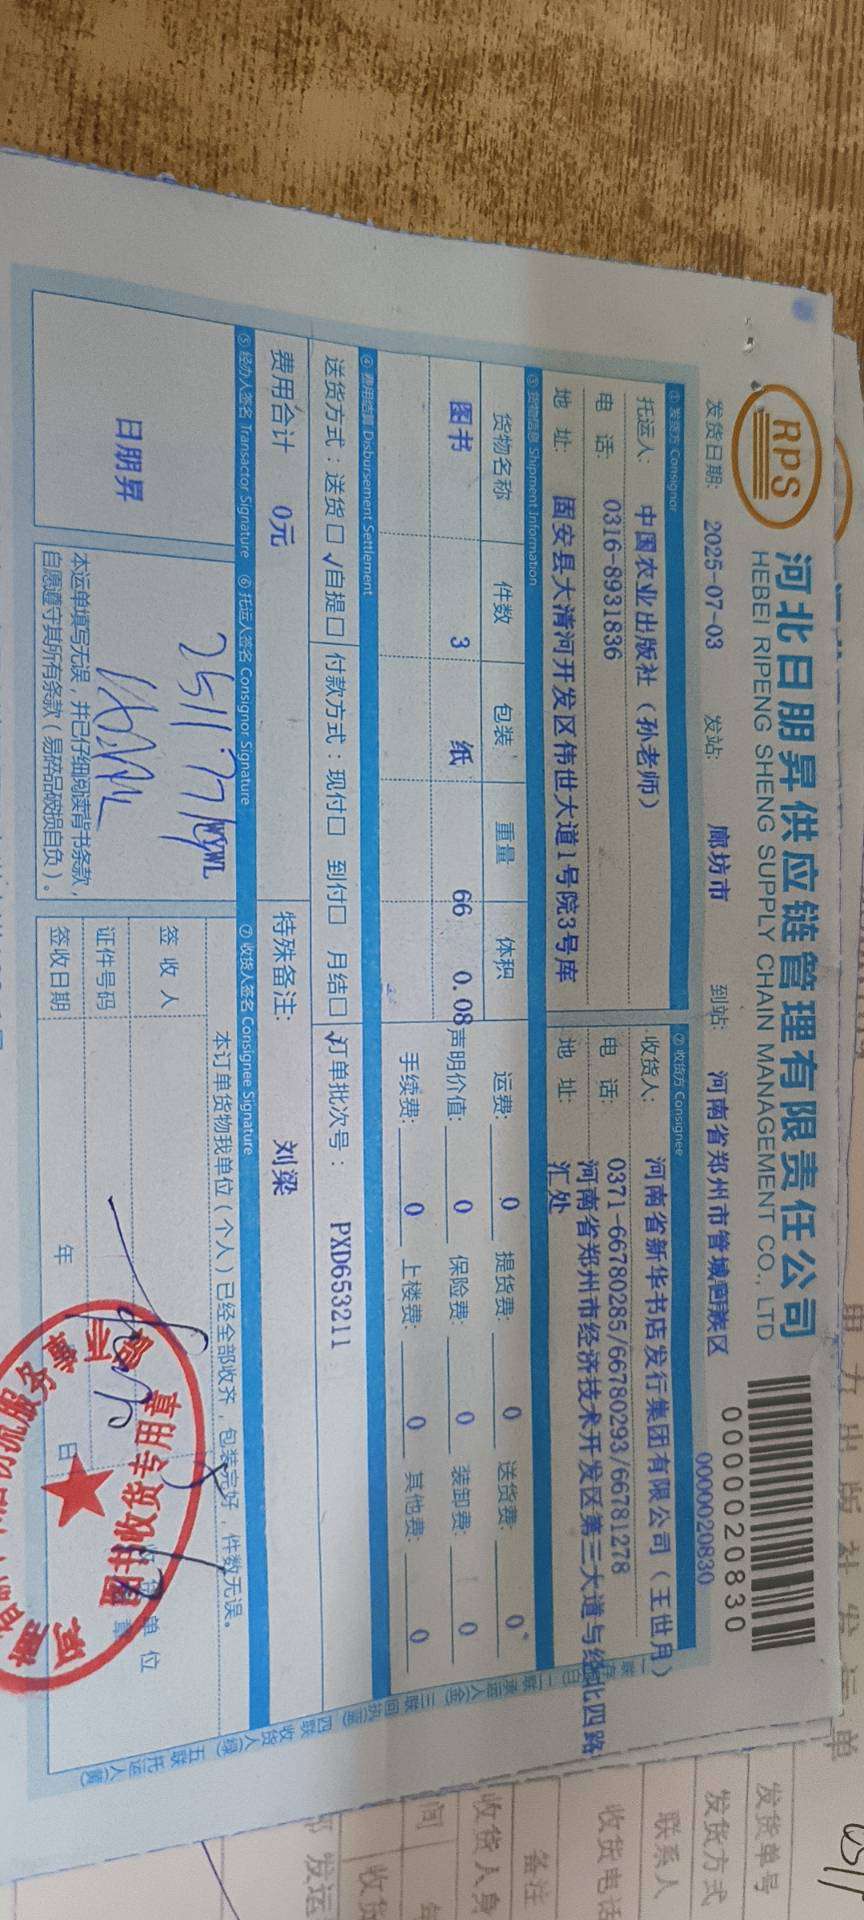 RPS
河北日朋昇供应链管理有限责任公司
HEBEI RIPENG SHENG SUPPLY CHAIN MANAGEMENT CO., LTD
0000020830
发货日期: 2025-07-03 发站: 廊坊市 到站: 河南省郑州市管城回族区 0000020830
① 发货方 Consignor ② 收货方 Consignee
托运人: 中国农业出版社（孙老师） 收货人: 河南省新华书店发行集团有限公司（王世月）
电 话: 0316-8931836 电 话: 0371-66780285/66780293/66781278
地 址: 固安县大清河开发区伟世大道1号院3号库 地 址: 河南省郑州市经济技术开发区第三大道与经北四路
汇处
③ 货物信息 Shipment Information
货物名称 件数 包装 重量 体积 运费: 0 提货费: 0 送货费: 0
图书 3 纸 66 0.08 声明价值: 0 保险费: 0 装卸费: 0
手续费: 0 上楼费: 0 其他费: 0
④ 费用结算 Disbursement Settlement
送货方式：送货□ √自提□ 付款方式：现付□ 到付□ 月结□ √订单批次号： PXD653211
费用合计 0元 特殊备注: 刘梁
⑤ 经办人签名 Transactor Signature ⑥ 托运人签名 Consignor Signature ⑦ 收货人签名 Consignee Signature
日朋昇
本运单填写无误，并已仔细阅读背书条款，
自愿遵守其所有条款（易碎品破损自负）。
本订单货物我单位（个人）已经全部收齐，包装完好，件数无误。
签 收 人
证件号码
签收日期 年 日
单 位
章
图书收货专用章
物流服务
一联存 二联承运人 三联回执 四联收货人(绿) 五联托运人(黄)
发货单号
发货方式
联系人
收货电话
备注
收货人身
间 年
收货
发运